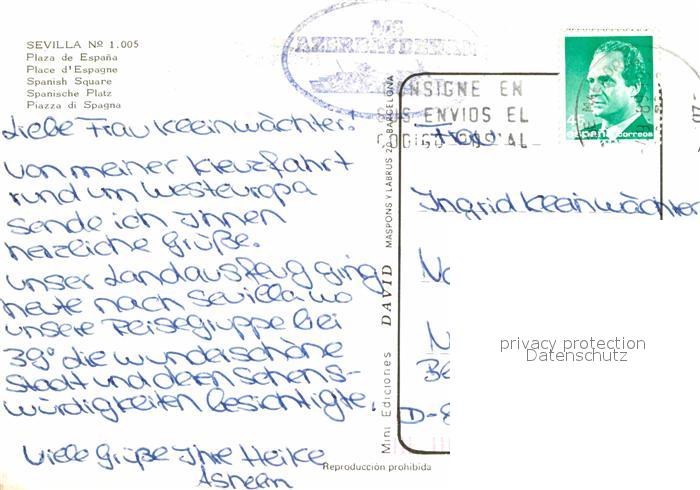 SEVILLA Nº 1.005
Plaza de España
Place d'Espagne
Spanish Square
Spanische Platz
Piazza di Spagna
Liebe Frau Kleinwächter!
von meiner Kreuzfahrt
rund um Westeuropa
sende ich Ihnen
herzliche Grüße.
unser Landausflug ging
heute nach Sevilla wo
unsere Reisegruppe bei
39° die wunderschöne
Stadt und deren Sehens-
würdigkeiten besichtigte.
Viele Grüße Ihre Heike
MS
AZERBAYDZHAN
CONSIGNE EN
SUS ENVIOS EL
CODIGO POSTAL
45
España correos
Frau
Ingrid Kleinwächter
D-8
privacy protection
Datenschutz
Mini Ediciones DAVID MASPONS Y LABRUS 20 BARCELONA
Reproducción prohibida